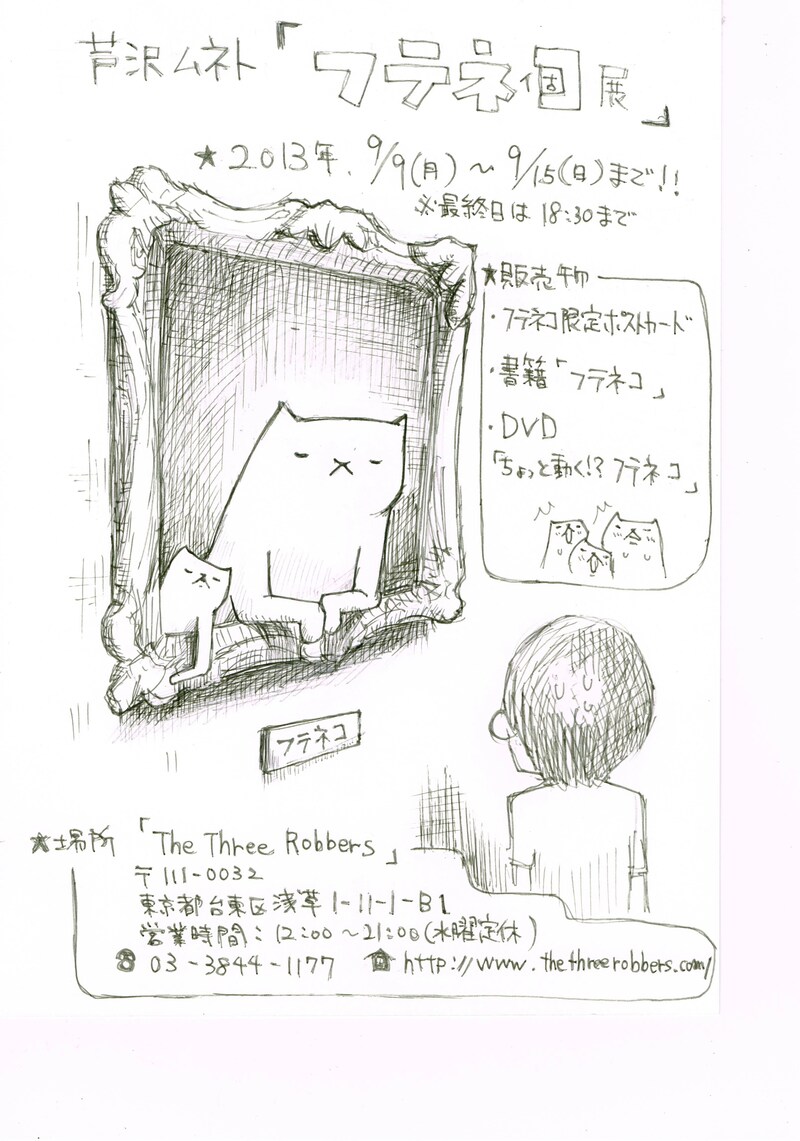 芦沢ムネト「フテネ個展」
★2013年.9/9(月)〜9/15(日)まで!!
※最終日は18:30まで
★販売物
・フテネコ限定ポストカード
・書籍「フテネコ」
・DVD
「ちょっと動く!?フテネコ」
フテネコ
★場所「The Three Robbers」
〒111-0032
東京都台東区浅草1-11-1-B1
営業時間:12:00〜21:00(水曜定休)
☎03-3844-1177 http://www.thethreerobbers.com/